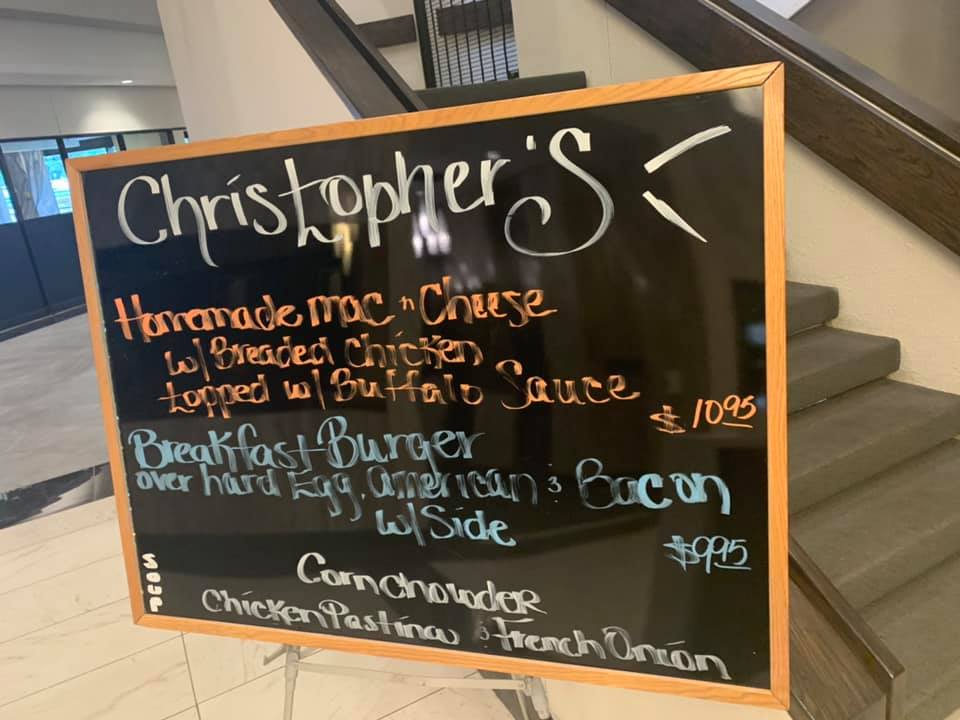 Christopher's
Homemade mac 'n Cheese
w/ Breaded Chicken
topped w/ Buffalo Sauce
$10.95
Breakfast Burger
over hard Egg, American & Bacon
w/ Side
$9.95
SOUP
Corn chowder
Chicken Pastina & French Onion